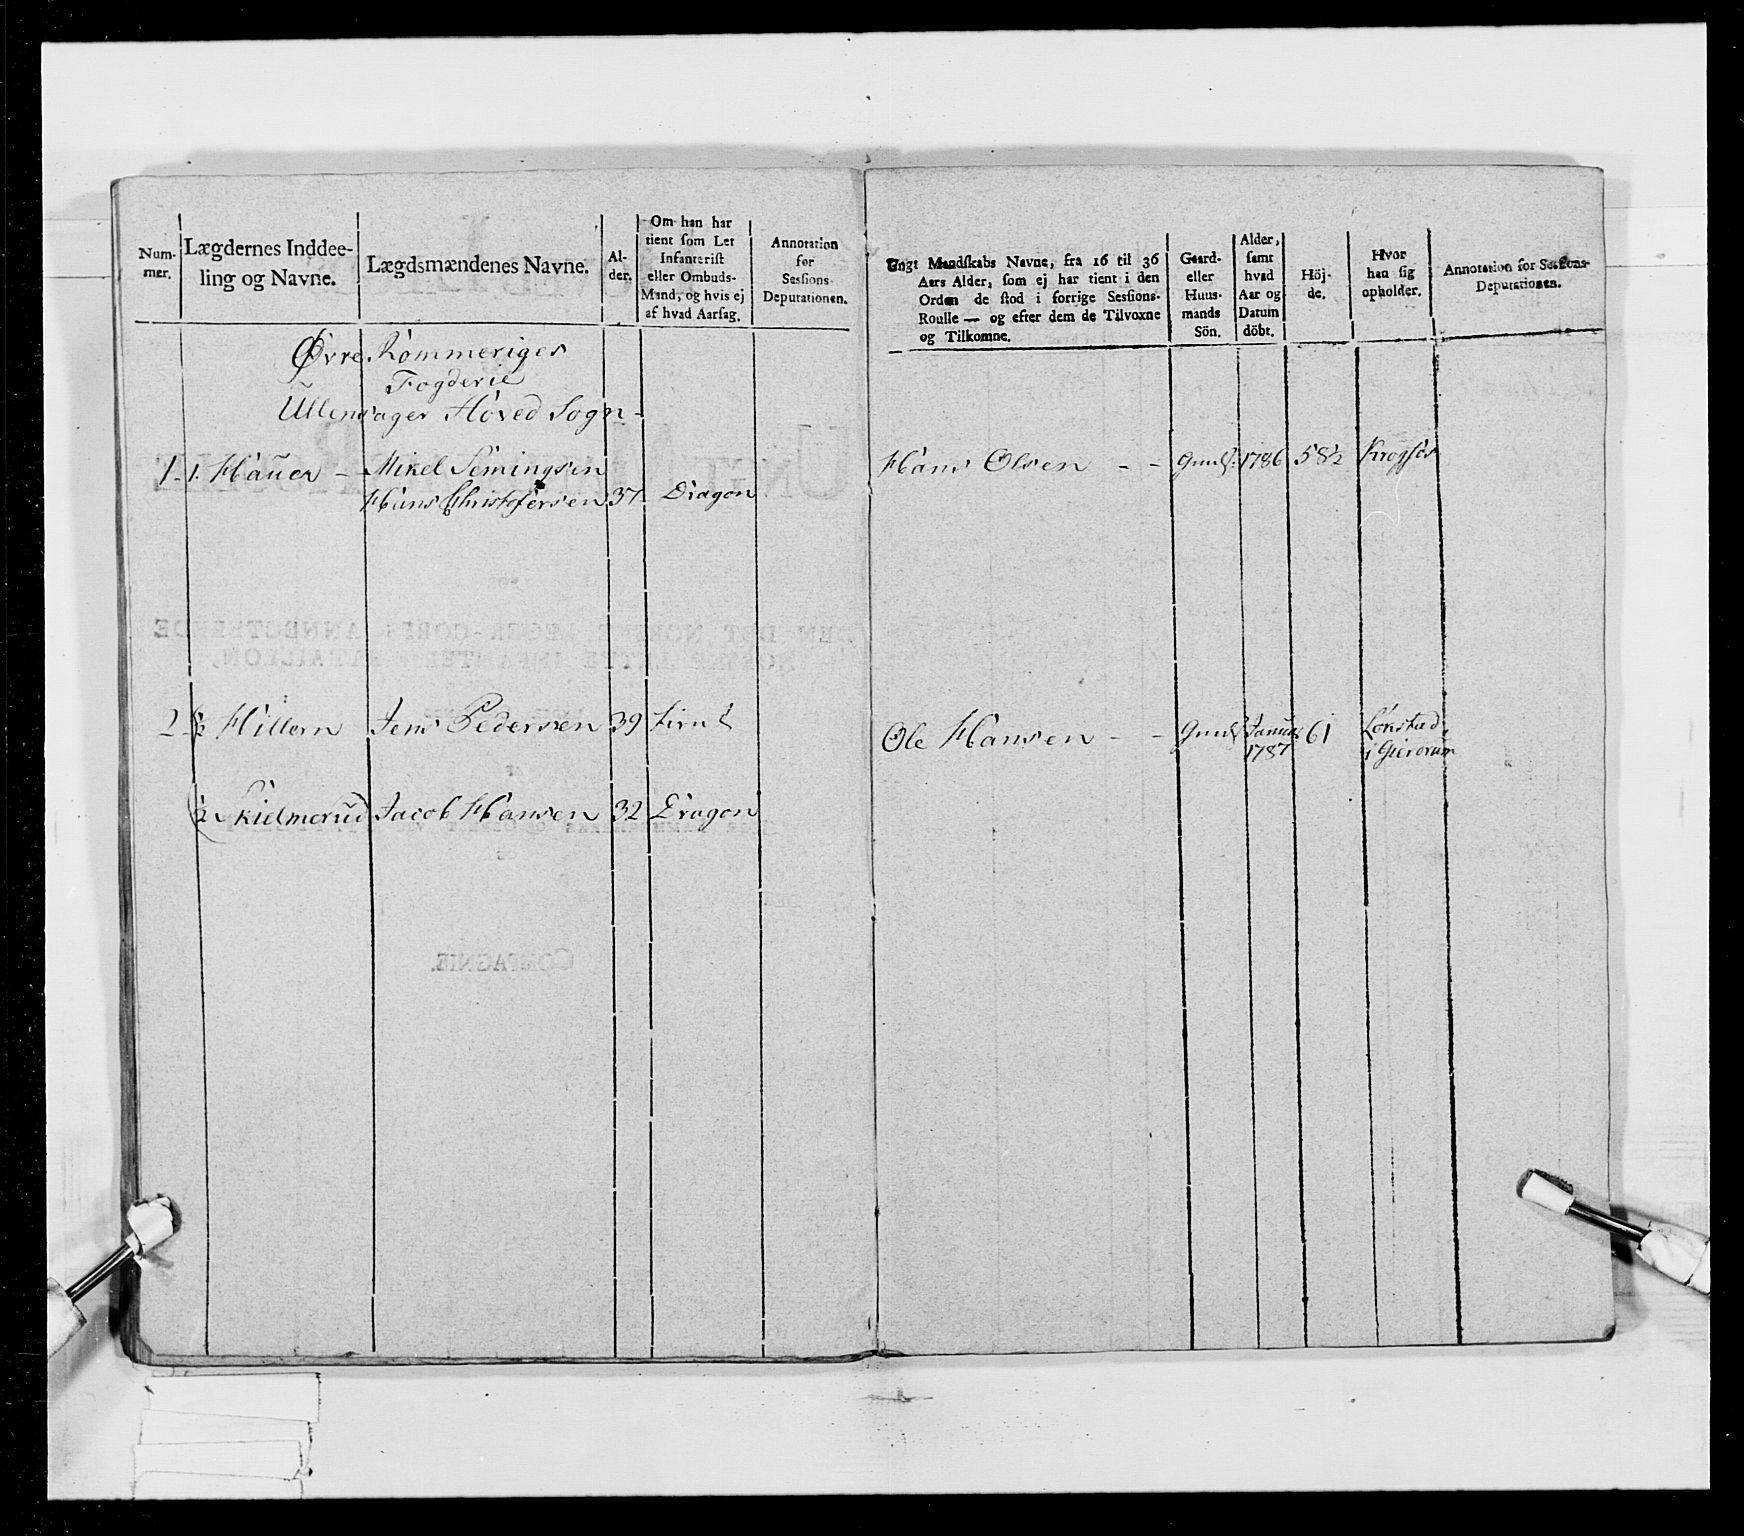 Num-
mer.
Lægdernes Inddee-
ling og Navne.
Lægdsmændenes Navne.
Al-
der.
Om han har
tient som Let
Infanterist
eller Ombuds-
Mand, og hvis ej
af hvad Aarsag.
Annotation
for
Sessions-
Deputationen.
Øvre Rommeriges
Fogderie
Ullensager Hoved Sogn
1. 1. Hauer - Mikel Semingsen
Hans Christofersen 37 Dragon
2 ½ Hillern Jens Pederssen 39
½ Kielmerud Jacob Hansen 32 Dragon
Ungt Mandskabs Navne, fra 16 til 36
Aars Alder, som ej har tient i den
Orden de stod i forrige Sessions-
Roulle — og efter dem de Tilvoxne
og Tilkomne.
Gaard-
eller
Huus-
mands
Sön.
Alder,
samt
hvad
Aar og
Datum
döbt.
Höj-
de.
Hvor
han sig
opholder.
Annotation for Sessions-
Deputationen.
Hans Olsen - - 1786 58½
Ole Hansen - - 61
1787